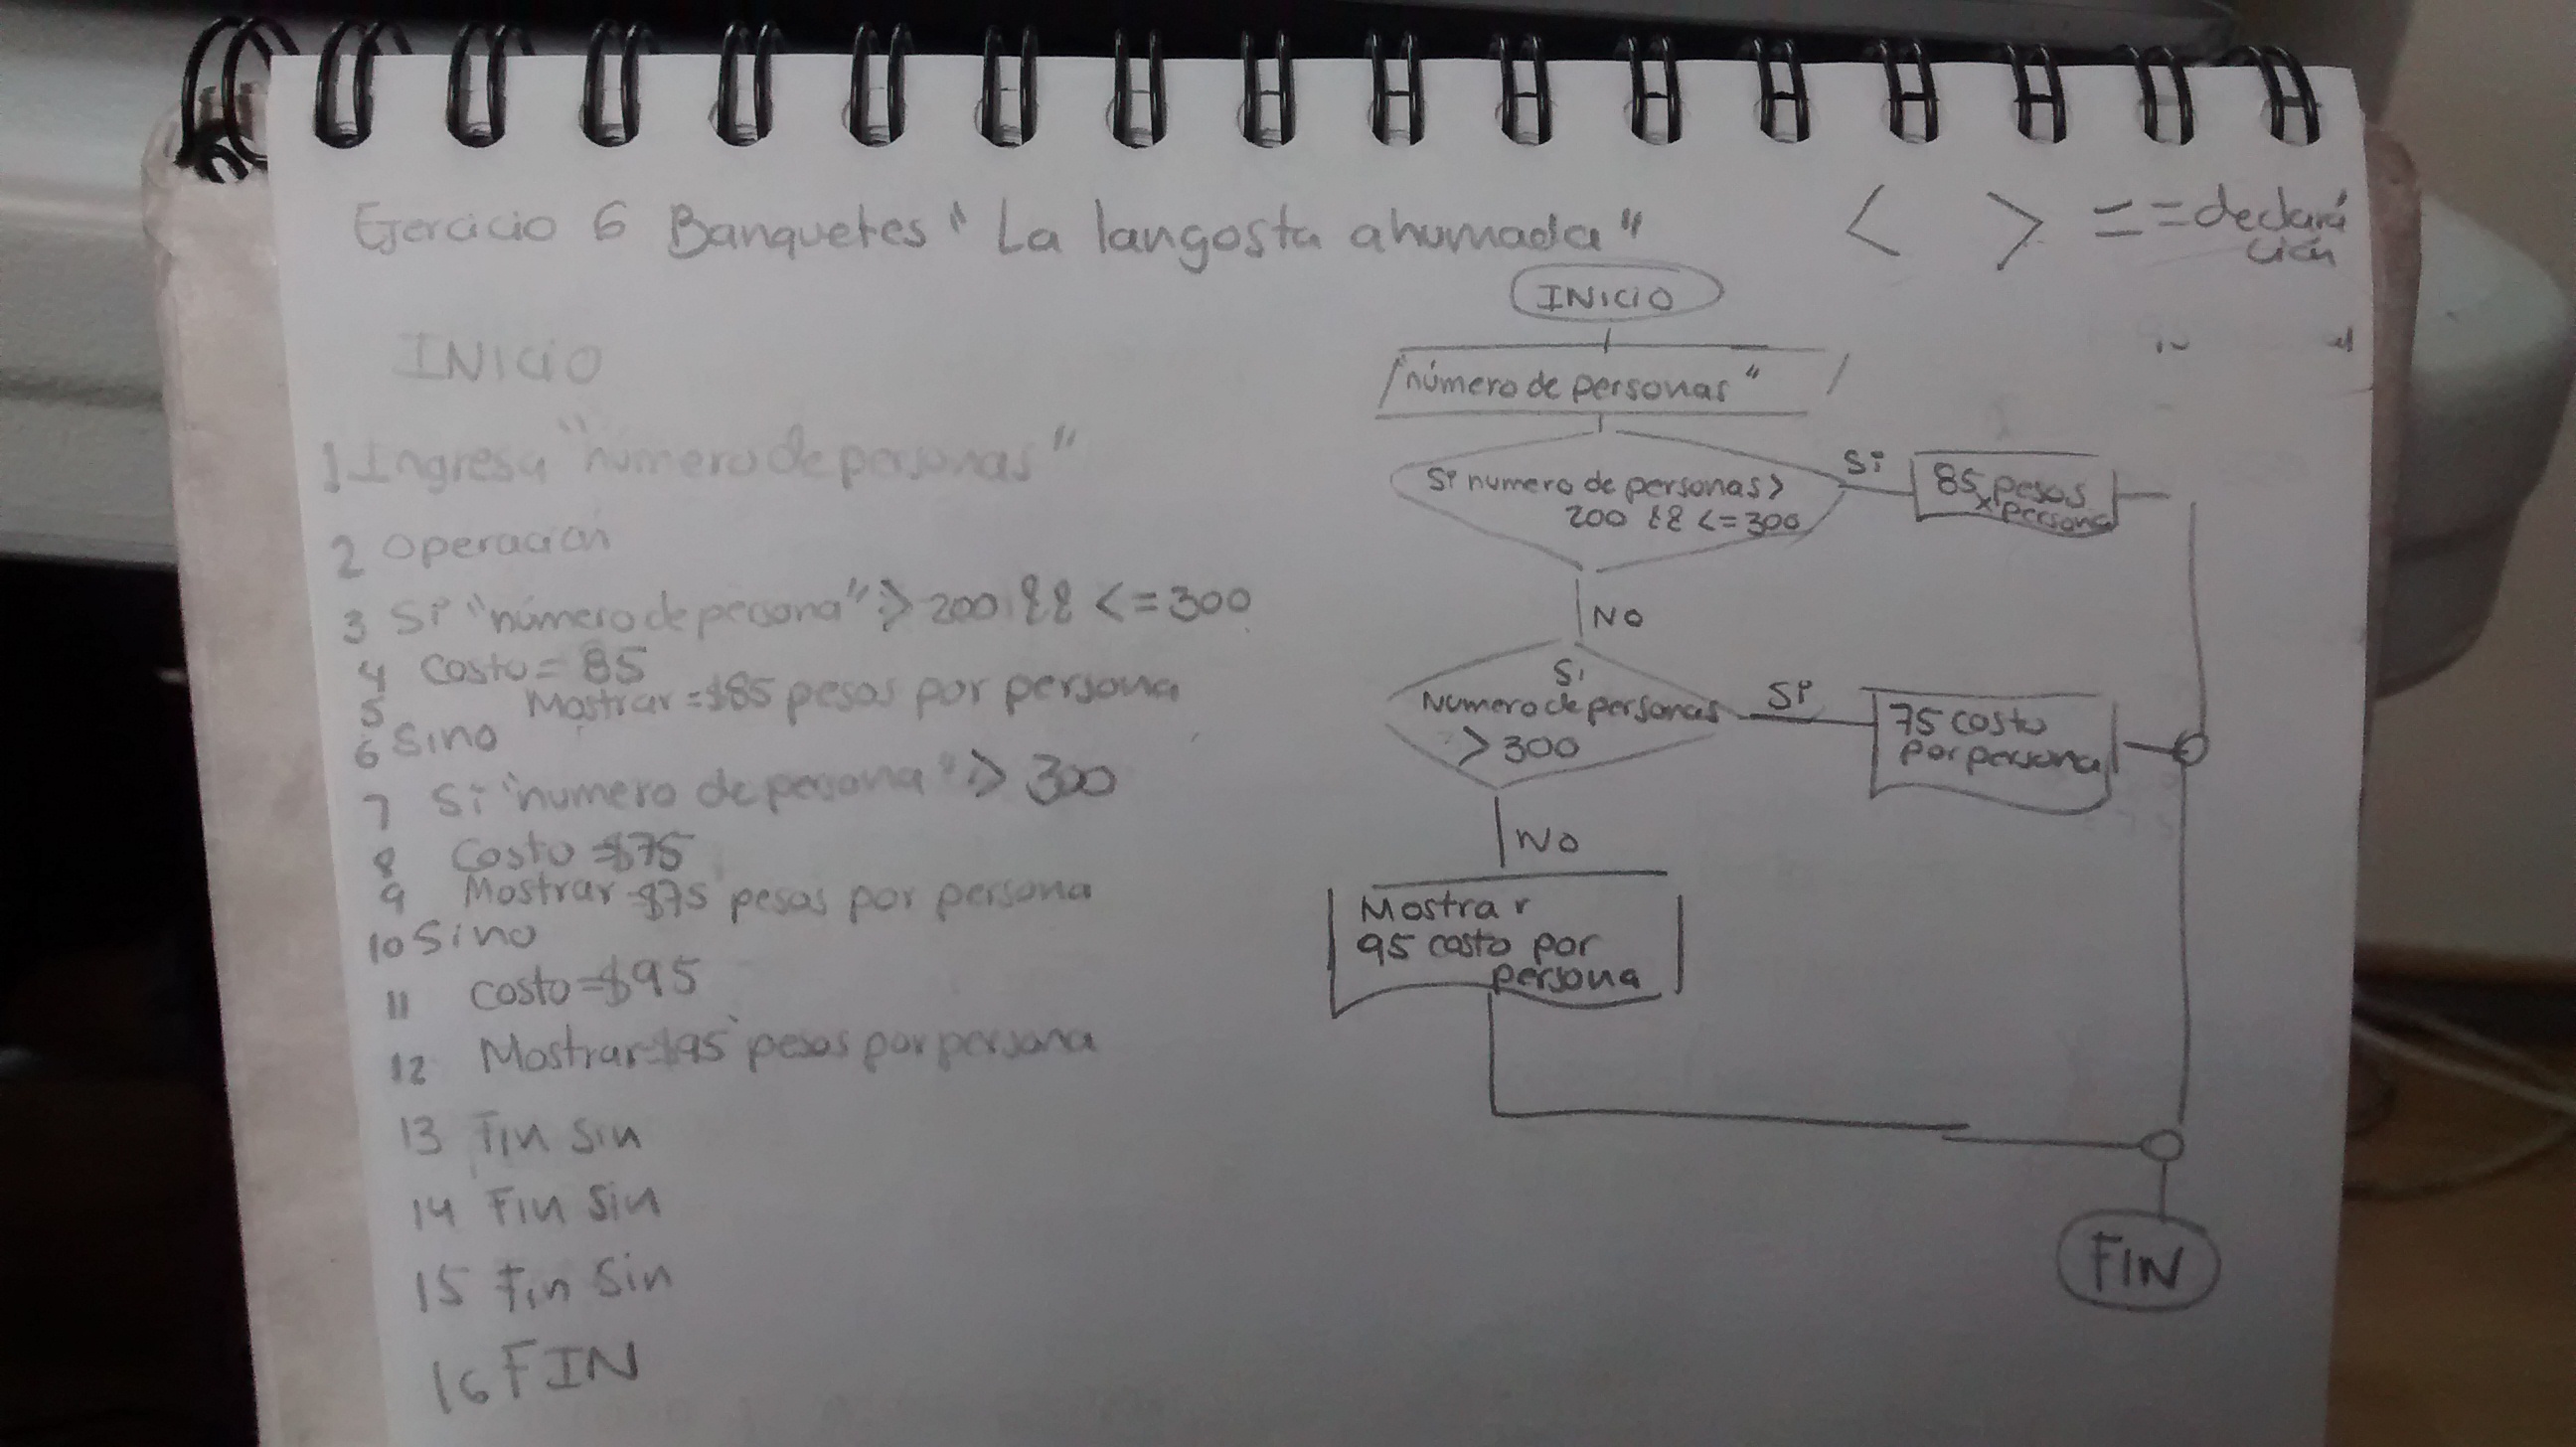 Ejercicio 6 Banquetes "La langosta ahumada"
< > = = declara
ción
INICIO
1 Ingresa "número de personas"
2 Operación
3 Si "número de persona" > 200 && <= 300
4 Costo = 85
5 Mostrar = $85 pesos por persona
6 Sino
7 Si "numero de persona" > 300
8 Costo = $75
9 Mostrar = $75 pesos por persona
10 Sino
11 Costo = $95
12 Mostrar = $95 pesos por persona
13 Fin Sin
14 Fin Sin
15 Fin Sin
16 FIN
INICIO
"número de personas"
Si numero de personas >
200 && <= 300
Si
85 pesos
x persona
NO
Si
Numero de personas
> 300
Si
75 costo
por persona
NO
Mostrar
95 costo por
persona
FIN